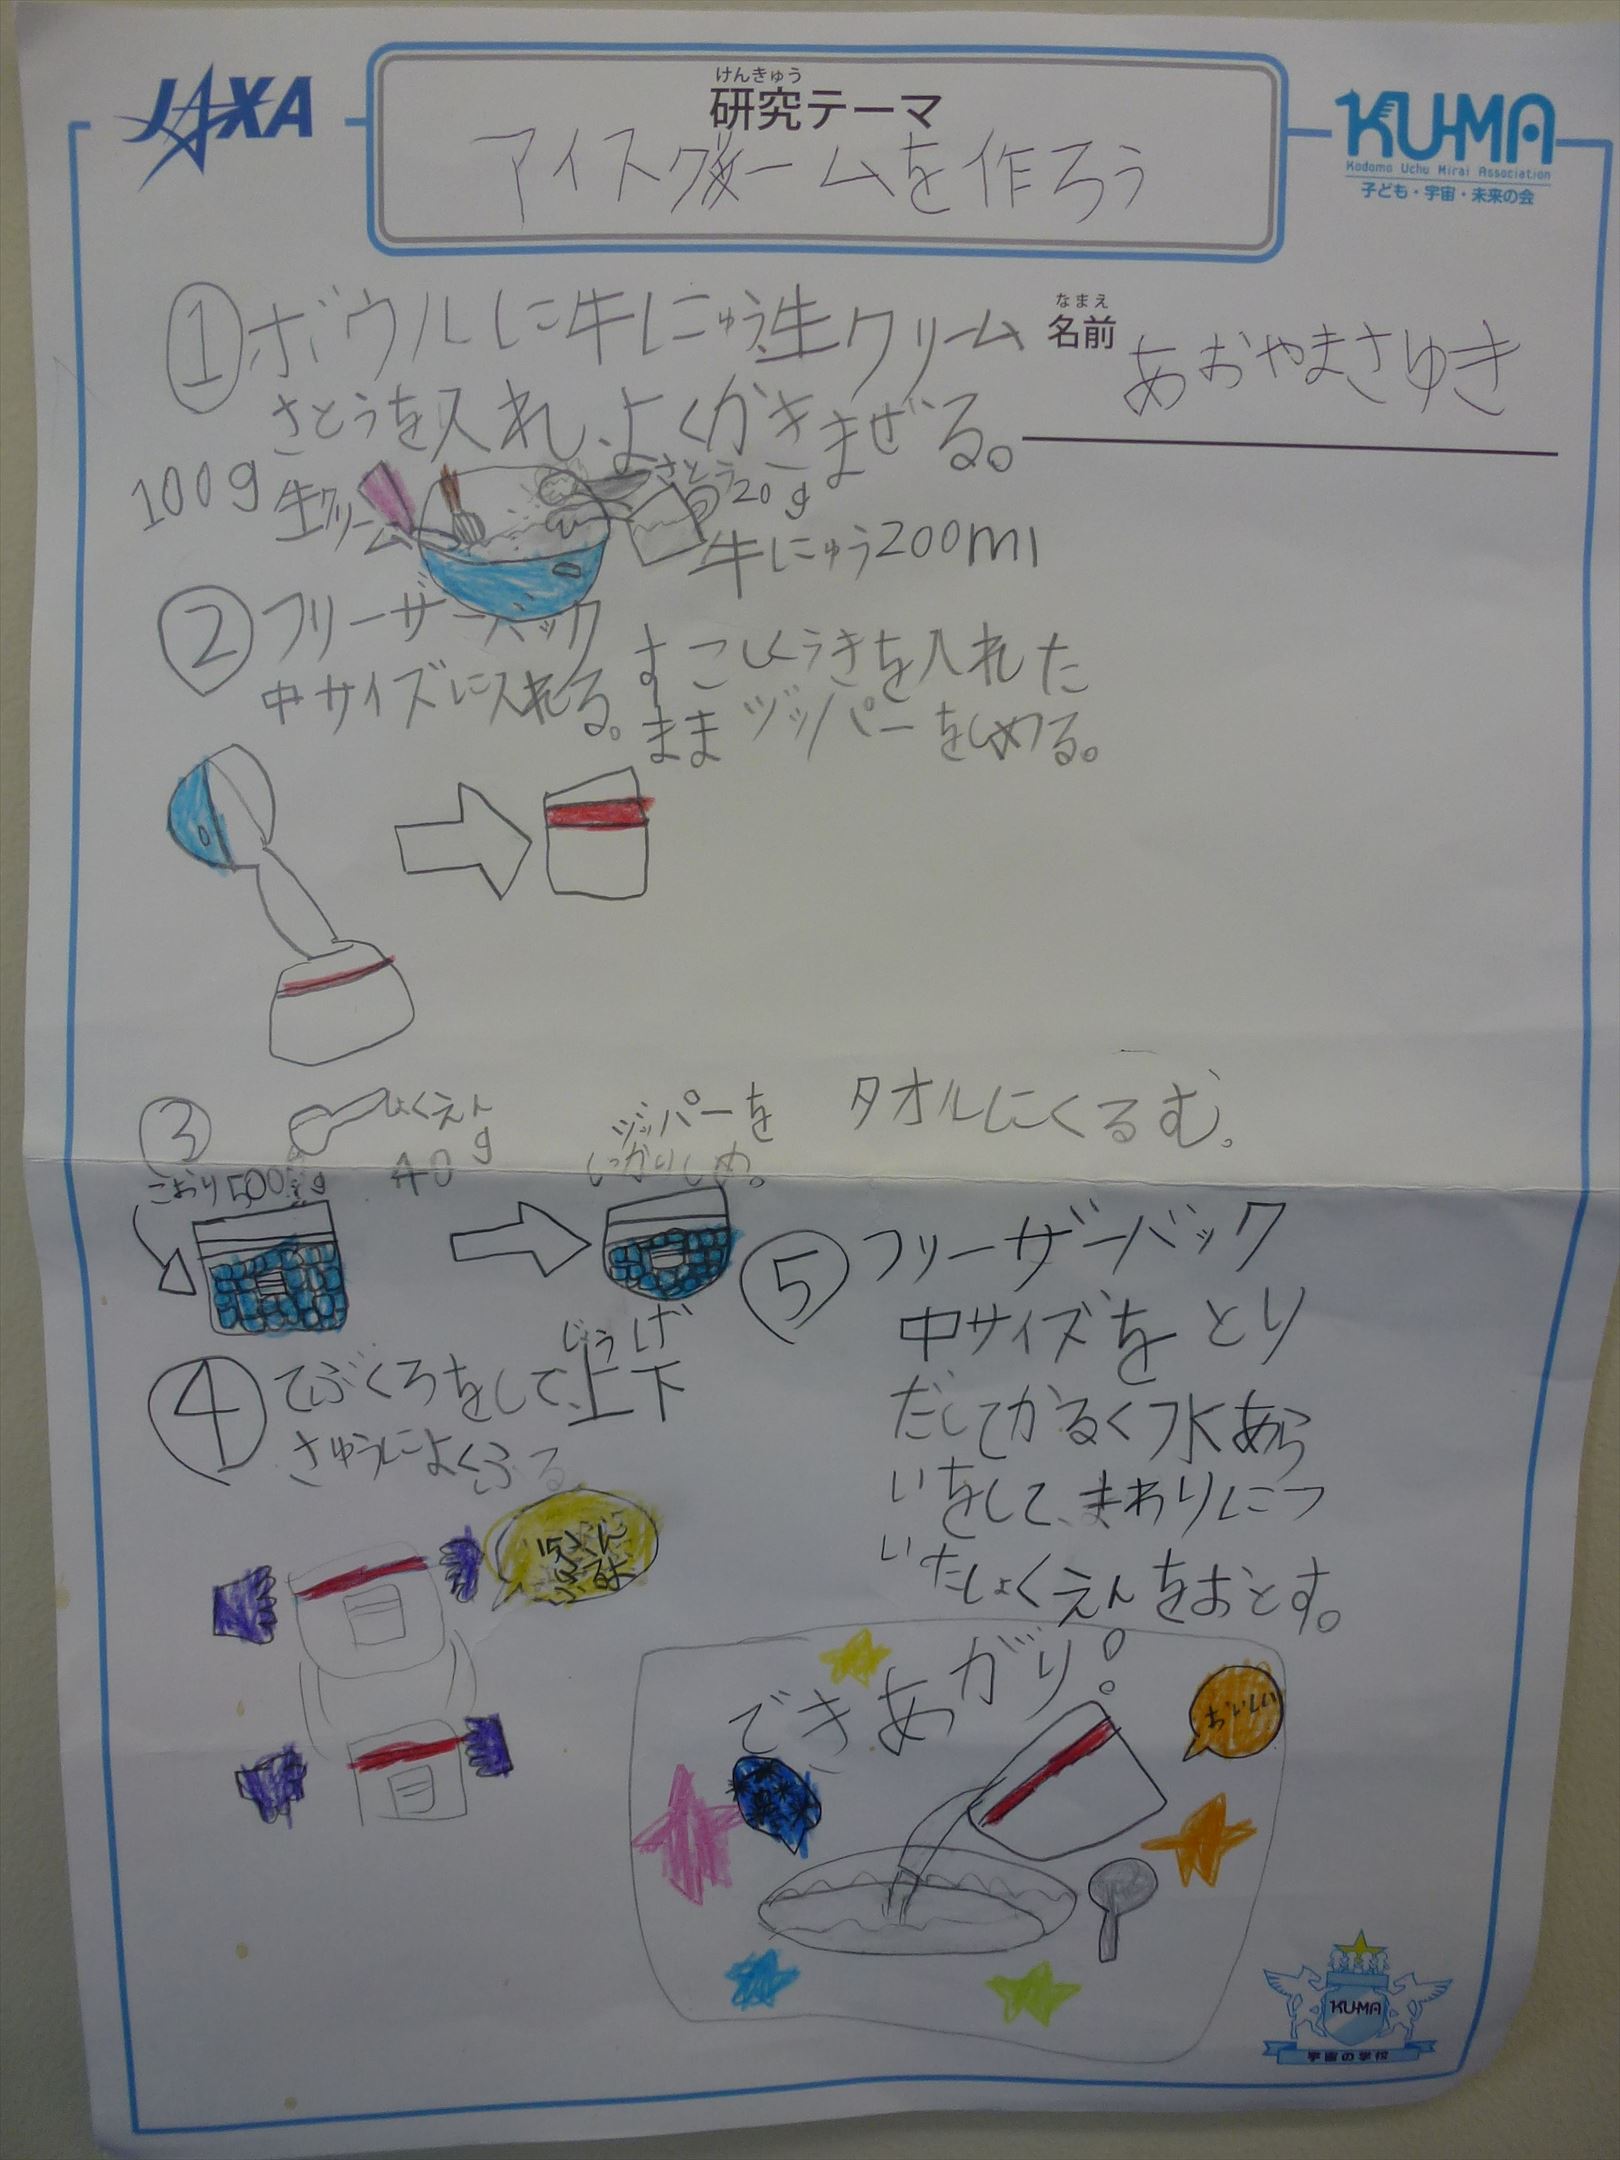 JAXA
けんきゅう
研究テーマ
KUMA
Kodomo Uchu Mirai Association
子ども・宇宙・未来の会
アイスクリームを作ろう
①ボウルに牛にゅう、生クリーム
さとうを入れ、よくかきまぜる。
なまえ
名前
あおやまさゆき
100g
生クリーム
さとう
20g
牛にゅう200ml
②フリーザーバック
中サイズに入れる。
すこしくうきを入れた
ままジッパーをしめる。
③
しょくえん
40g
こおり500g
ジッパーを
しっかりしめ。
タオルにくるむ。
④てぶくろをして、上下
じょうげ
さゆうによくふる
⑤フリーザーバック
中サイズをとり
だしてかるく水あら
いをして、まわりにつ
いたしょくえんをおとす。
できあがり!
おいしい
KUMA
宇宙の学校